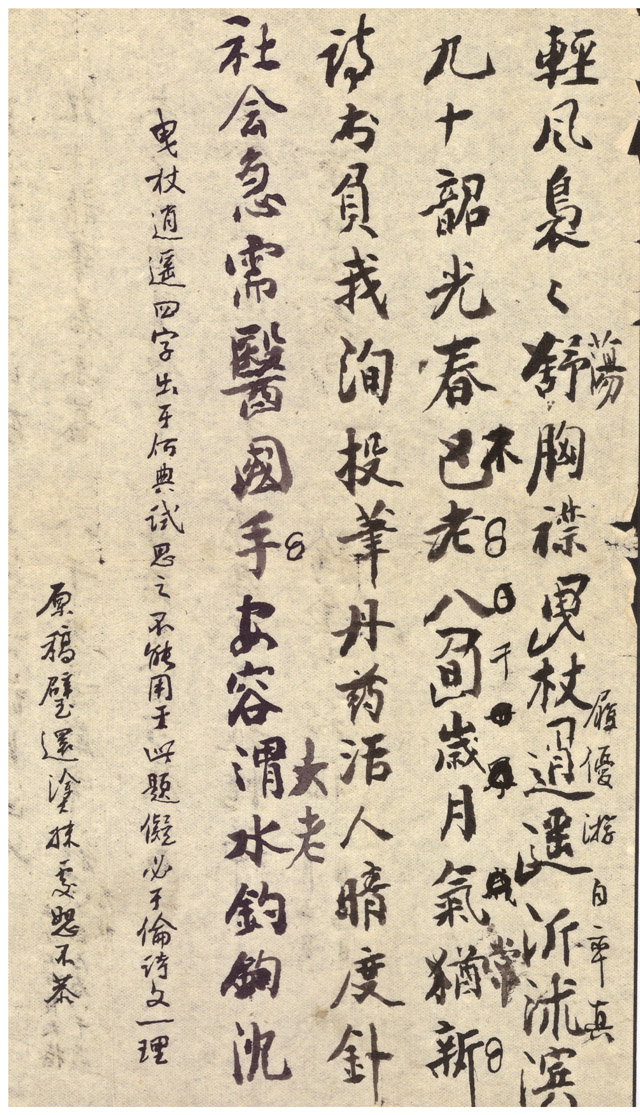 輕風裊〻舒胸襟曳杖逍遥沂沭濱
蕩
屐優游自率真
九十韶光春已老八旬歲月氣猶新
不
常
詩书負我洵投筆丹药活人暗度針
社会急需醫國手安容渭水釣鉤沈
大老
曳杖逍遥四字出于何典試思之不能用于此題儗必于倫詩文一理
原稿璧還塗抹處恕不恭